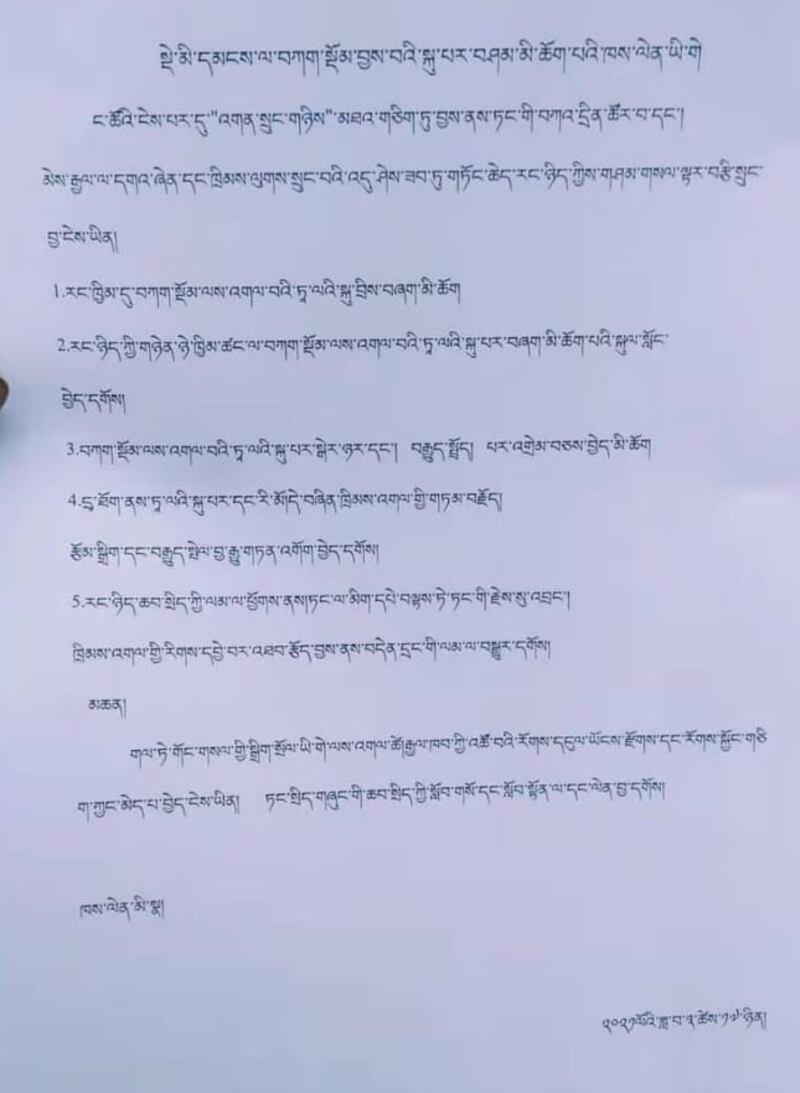 སྡེ་མི་དམངས་ལ་བཀག་སྡོམ་བྱས་བའི་སྐུ་པར་བཤམ་མི་ཆོག་པའི་ཁས་ལེན་ཡི་གེ
ང་ཚོའི་ངེས་པར་དུ་"འགན་སྲུང་གཉིས"་མཐའ་གཅིག་ཏུ་བྱས་ནས་ཏང་གི་བཀའ་དྲིན་ཚོར་བ་དང་།
མེས་རྒྱལ་ལ་དགའ་ཞེན་དང་ཁྲིམས་ལུགས་སྲུང་བའི་འདུ་ཤེས་ཟབ་ཏུ་གཏོང་ཆེད་རང་ཉིད་ཀྱིས་གཤམ་གསལ་ལྟར་བརྩི་སྲུང་
བྱ་ངེས་ཡིན།
1.རང་ཁྱིམ་དུ་བཀག་སྡོམ་ལས་འགལ་བའི་ཏཱ་ལའི་སྐུ་བྲིས་བཞག་མི་ཆོག
2.རང་ཉིད་ཀྱི་གཉེན་ཉེ་ཁྱིམ་ཚང་ལ་བཀག་སྡོམ་ལས་འགལ་བའི་ཏཱ་ལའི་སྐུ་པར་བཞག་མི་ཆོག་པའི་སྐུལ་སློང་
བྱེད་དགོས།
3.བཀག་སྡོམ་ལས་འགལ་བའི་ཏཱ་ལའི་སྐུ་པར་སྒེར་ཉར་དང་། བརྒྱུད་སྤྲོད། པར་འགྲེམ་བཅས་བྱེད་མི་ཆོག
4.དྲ་ཐོག་ནས་ཏཱ་ལའི་སྐུ་པར་དང་རི་མོ་དེ་བཞིན་ཁྲིམས་འགལ་གྱི་གཏམ་བརྗོད།
རྩོམ་སྒྲིག་དང་བརྒྱུད་སྤེལ་བྱ་རྒྱུ་གཏན་འགོག་བྱེད་དགོས།
5.རང་ཉིད་ཆབ་སྲིད་ཀྱི་ལམ་ལ་ཕྱོགས་ནས།ཏང་ལ་མིག་དཔེ་བལྟས་ཏེ་ཏང་གི་རྗེས་སུ་འབྲང་།
ཁྲིམས་འགལ་གྱི་རིགས་དབྱེ་བར་འཐབ་རྩོད་བྱས་ནས་བདེན་དྲང་གི་ལམ་ལ་བསྒྱུར་དགོས།
མཆན།
གལ་ཏེ་གོང་གསལ་གྱི་སྒྲིག་སྲོལ་ཡི་གེ་ལས་འགལ་ཚེ།རྒྱལ་ཁབ་ཀྱི་འཚོ་བའི་རོགས་དངུལ་ཡོངས་རྫོགས་དང་རོགས་སྐྱོང་གཅི
ག་ཀྱང་མེད་པ་བྱེད་ངེས་ཡིན། ཏང་སྲིད་གཞུང་གི་ཆབ་སྲིད་ཀྱི་སློབ་གསོ་དང་སློབ་སྟོན་ལ་དང་ལེན་བྱ་དགོས།
ཁས་ལེན་མི་སྣ།
༢༠༢༡ལོའི་ཟླ་བ་༣་ཚེས་༡༧་ཉིན།